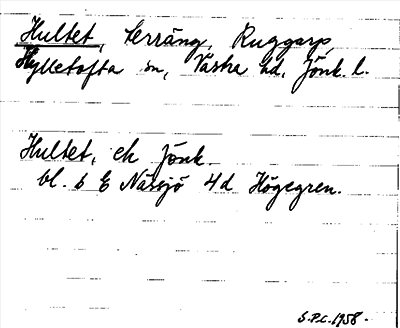 Hultet, terräng, Ruggarp,
Hylletofta sn, Västra hd, Jönk. l.
Hultet, ek Jönk.
bl. 6 E Nässjö 4d Högegren.
S.P.c. 1958.